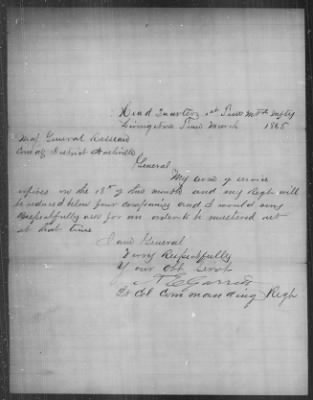 Head Quarters 1st Tenn Mtd Infty
Livingston Tenn March 1865
Maj General
Com'dg District Nashville
General
My term of service
expires on the 18th of this month and my Regt will
be reduced below four companies and I would very
Respectfully ask for an order to be mustered out
at that time
I am General
Very Respectfully
Your Obt Servt
A E Garrett
Lt Col Commanding Regt